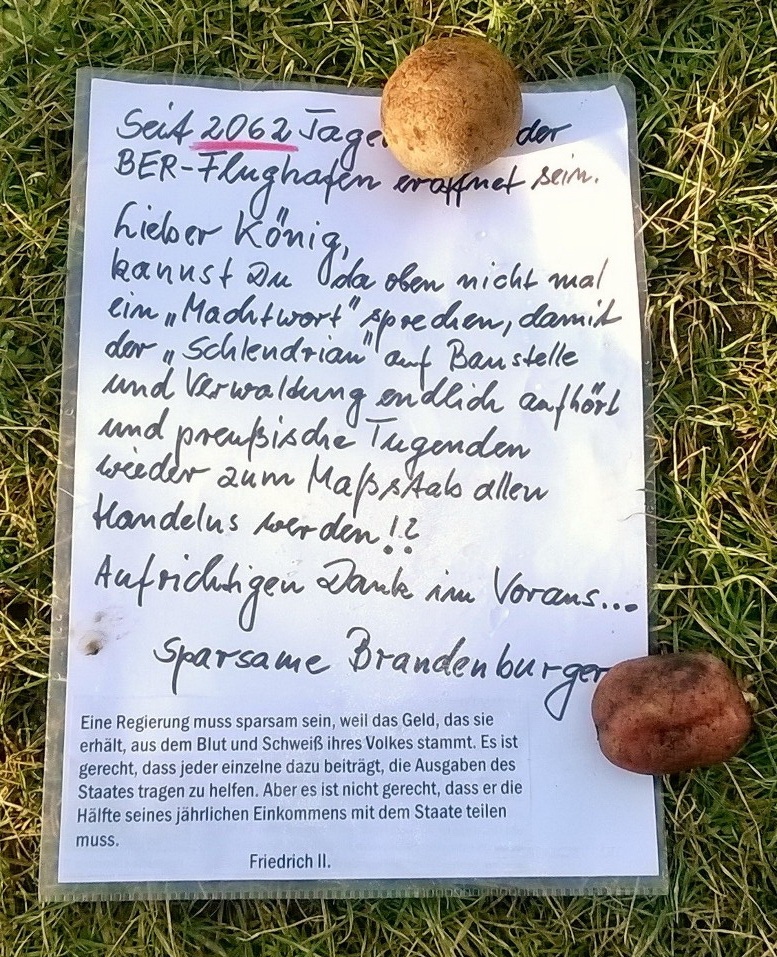 Seit 2062 Tage der
BER-Flughafen eröffnet sein.
Lieber König,
kannst Du da oben nicht mal
ein „Machtwort" sprechen, damit
der „Schlendrian" auf Baustelle
und Verwaltung endlich aufhört
und preußische Tugenden
wieder zum Maßstab allen
Handelns werden!?
Aufrichtigen Dank im Voraus...
Sparsame Brandenburger
Eine Regierung muss sparsam sein, weil das Geld, das sie
erhält, aus dem Blut und Schweiß ihres Volkes stammt. Es ist
gerecht, dass jeder einzelne dazu beiträgt, die Ausgaben des
Staates tragen zu helfen. Aber es ist nicht gerecht, dass er die
Hälfte seines jährlichen Einkommens mit dem Staate teilen
muss.
Friedrich II.